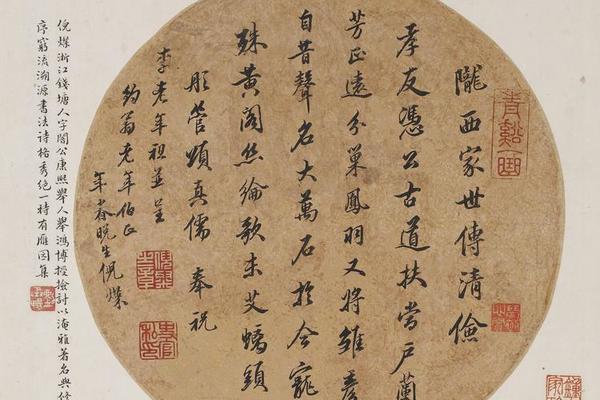 隴西家世傳清儉
孝友憑公古道扶當戶蘭
芳正遠分巢鳳羽又將雛
自昔聲名大萬石於今寵
殊黃閣絲綸歌未艾螭頭
彤管頌真儒 奉祝
李老年祖並呈
約翁老年伯正
年眷晚生倪燦
倪燦浙江錢塘人字闇公康熙舉人舉鴻博授檢討以淹雅著名與修
序窮流溯源書法詩格秀絕一時有雁園集